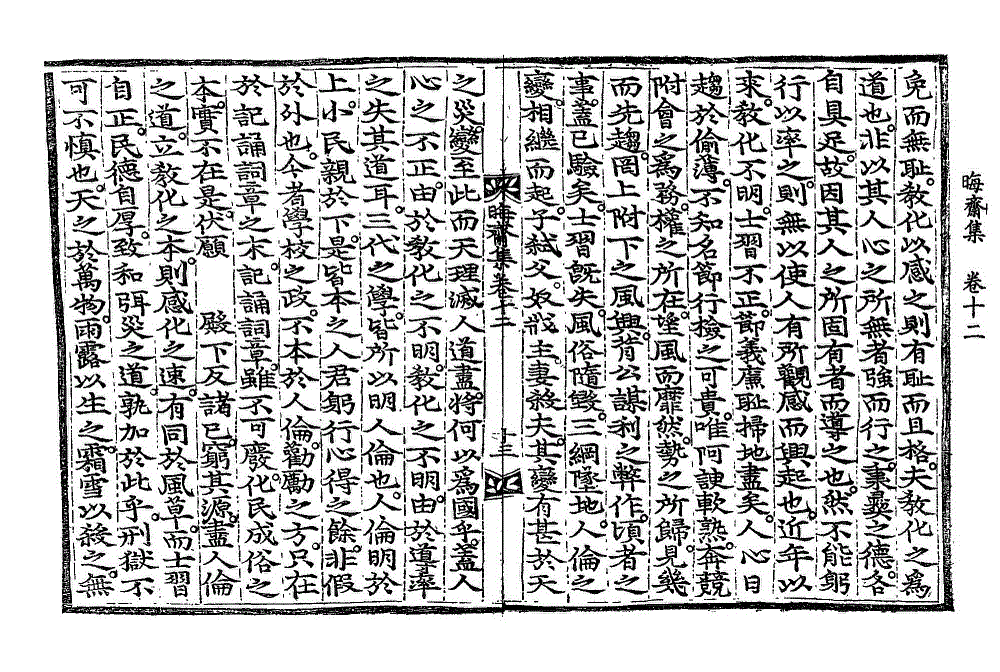 晦齋集　卷十二
免而無恥教化以感之則有恥而且格夫教化之爲
道也非以其人心之所無者強而行之秉彝之德各
自具足故因其人之所固有者而導之也然不能躬
行以率之則無以使人有所觀感而興起也近年以
來教化不明士習不正節義廉恥掃地盡矣人心日
趨於偷薄不知名節行檢之可貴唯阿諛軟熟奔競
附會之爲務權之所在望風而靡然勢之所歸見幾
而先趨罔上附下之風興背公謀利之弊作頃者之
事蓋已驗矣士習旣失風俗隨毀三綱墜地人倫之
變相繼而起子弑父奴戕主妻殺夫其變有甚於天
晦齋集卷十二
十三
之災變至此而天理滅人道盡將何以爲國乎蓋人
心之不正由於教化之不明教化之不明由於導率
之失其道耳三代之學皆所以明人倫也人倫明於
上小民親於下是皆本之人君躬行心得之餘非假
於外也今者學校之政不本於人倫勸勵之方只在
於記誦詞章之末記誦詞章雖不可廢化民成俗之
本實不在是伏願　殿下反諸已窮其源盡人倫
之道立教化之本則感化之速有同於風草而士習
自正民德自厚致和弭災之道孰加於此乎刑獄不
可不慎也天之於萬物雨露以生之霜雪以殺之無